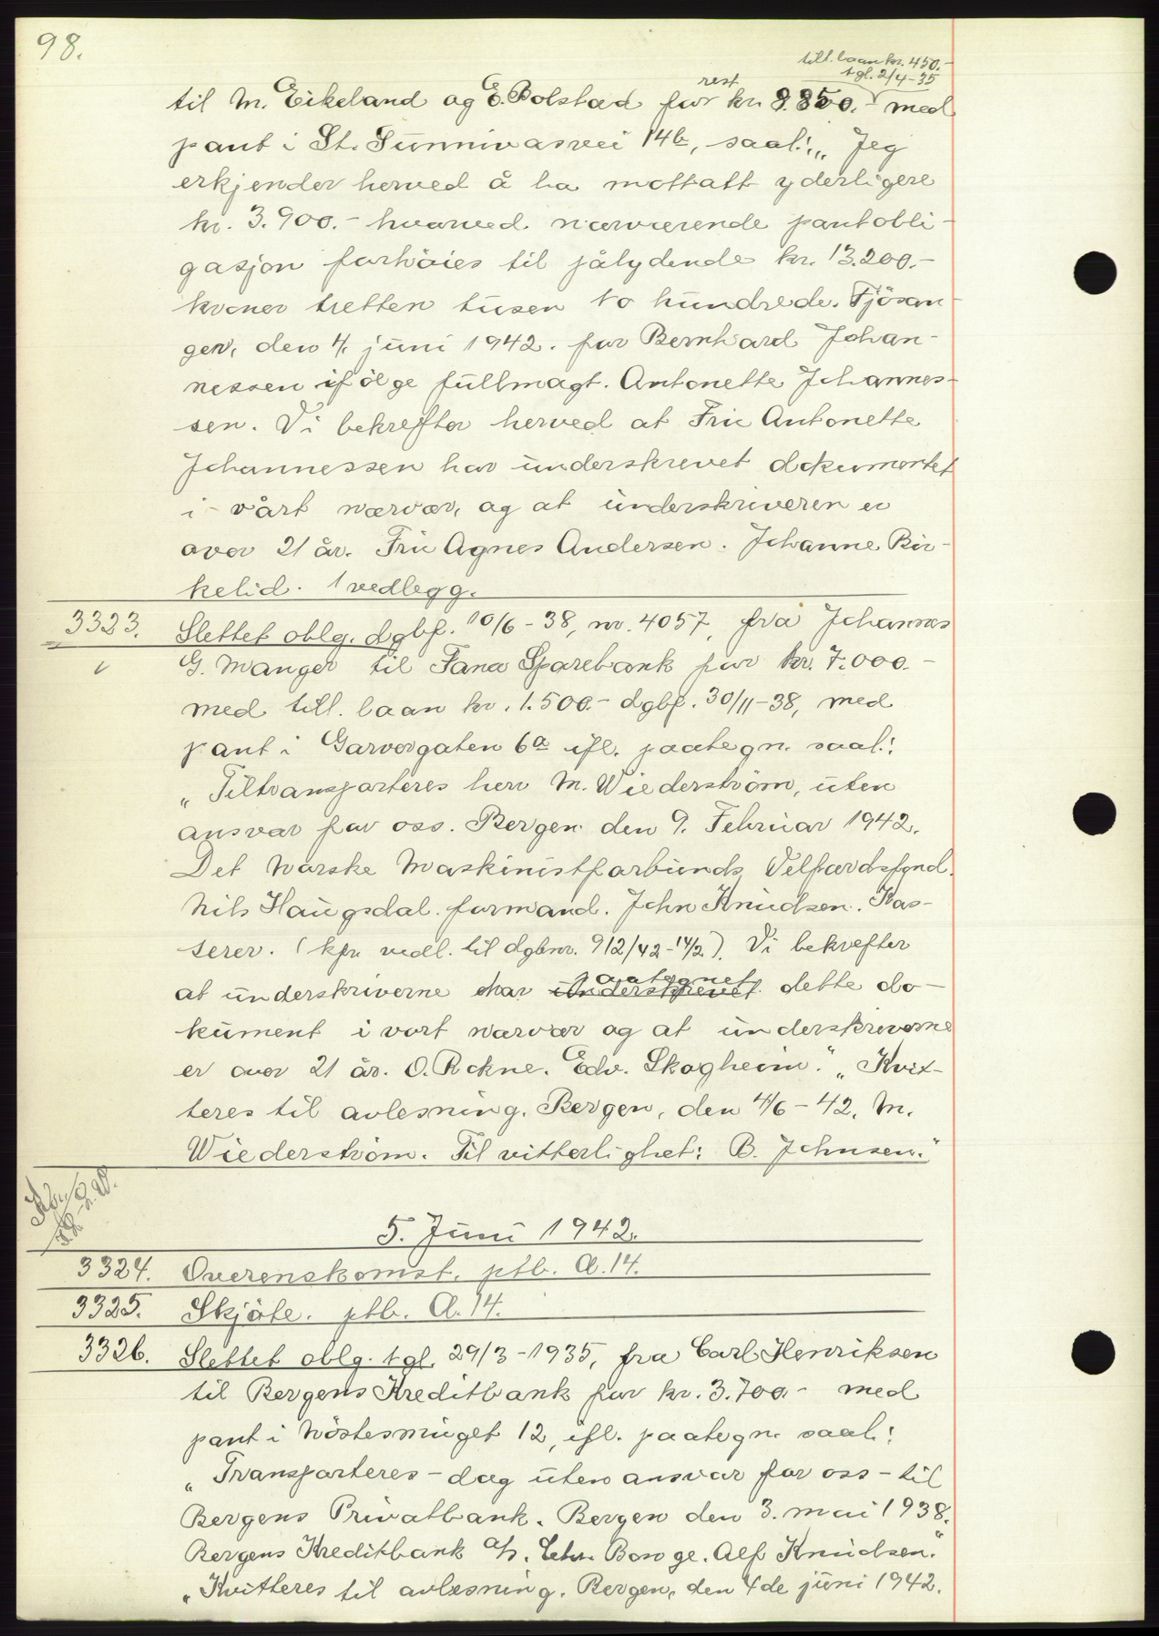 98.
till. laan kr. 450.-
tgl. 2/4-35
rest
til M. Eikeland og E. Bolstad for kr. 8.850.- med
pant i St. Sunnivasvei 14b, saal.: „Jeg
erkjender herved å ha mottatt yderligere
kr. 3.900.- hvorved nærværende pantobli-
gasjon forhöies til pålydende kr. 13.200.-
kroner tretten tusen to hundrede. Fjösan-
ger, den 4. juni 1942. for Bernhard Johan-
nessen ifölge fullmagt. Antonette Johannes-
sen. Vi bekrefter herved at Fru Antonette
Johannessen har underskrevet dokumentet
i vårt nærvær, og at underskriveren er
over 21 år. Fru Agnes Andersen. Johanne Bir-
kelid. 1 vedlegg.
3323. Slettet oblg. dgbf. 10/6-38, nr. 4057, fra Johannes
G. Manger til Fana Sparebank for kr. 7.000.-
med till. laan kr. 1.500.- dgbf. 30/11-38, med
pant i Garvergaten 6a ifl. paategn. saal.:
„Tiltransporteres herr M. Wiederström, uten
ansvar for oss. Bergen den 9. Februar 1942.
Det Norske Maskinistforbunds Velfærdsfond.
Nils Haugsdal. formand. John Knudsen. Kas-
serer. (kfr. vedl. til dgbnr. 912/42-14/2). Vi bekrefter
paategnet
at underskriverne har underskrevet dette do-
kument i vort nærvær og at underskriverne
er over 21 år. O. Rekne. Edv. Skogheim." „Kvit-
teres til avlesning. Bergen, den 4/6-42. M.
Wiederström. Til vitterlighet: B. Johnsen."
5. Juni 1942.
3324. Overenskomst. ptb. A. 14.
3325. Skjöte. ptb. A. 14.
3326. Slettet oblg. tgl. 29/3-1935, fra Carl Henriksen
til Bergens Kreditbank for kr. 3.700.- med
pant i Nöstesmuget 12, ifl. paategn. saal.:
„Transporteres - dog uten ansvar for oss - til
Bergens Privatbank. Bergen den 3. mai 1938.
Bergens Kreditbank A/S. Chr. Borge. Alf Knudsen."
„Kvitteres til avlæsning. Bergen, den 4de juni 1942.